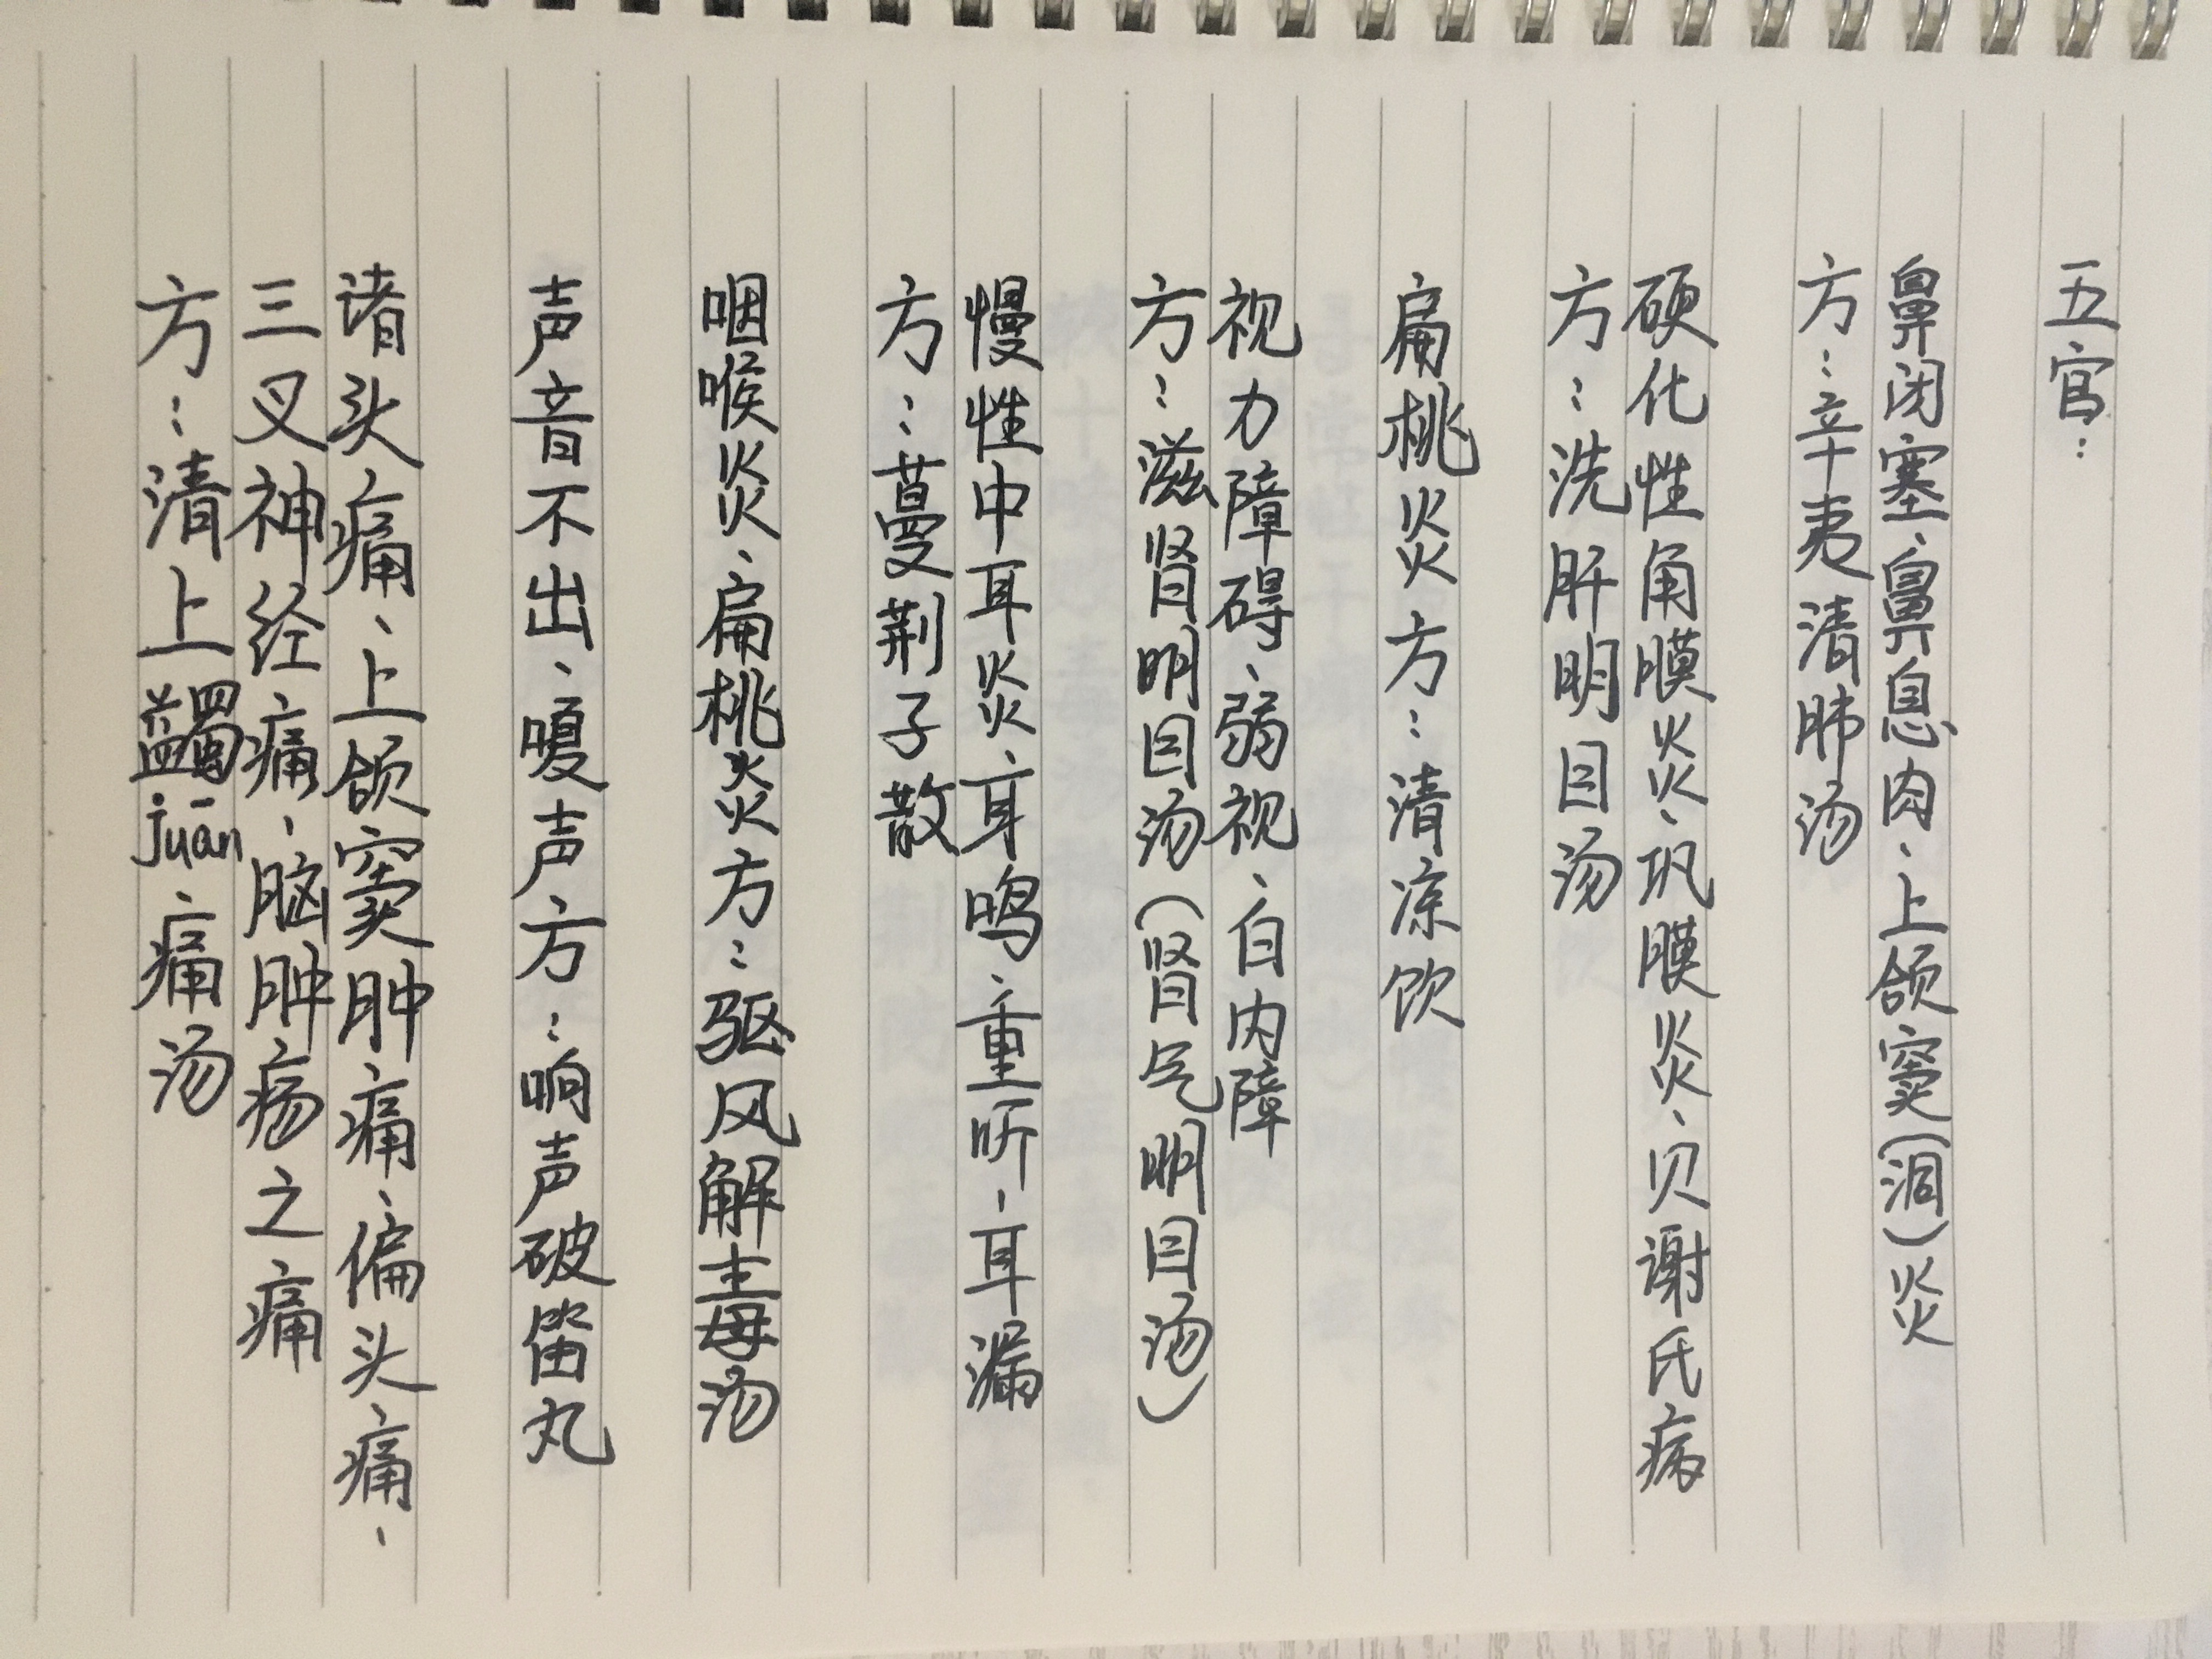 五官：
鼻闭塞、鼻息肉、上颌窦(洞)炎
方：辛夷清肺汤
硬化性角膜炎、巩膜炎、贝谢氏病
方：洗肝明目汤
扁桃炎方：清凉饮
视力障碍、弱视、白内障
方：滋肾明目汤(肾气明目汤)
慢性中耳炎、耳鸣、重听、耳漏
方：蔓荆子散
咽喉炎、扁桃炎方：驱风解毒汤
声音不出、嗄声方：响声破笛丸
诸头痛、上颌窦肿痛、偏头痛、
三叉神经痛、脑肿疡之痛
方：清上蠲juān、痛汤